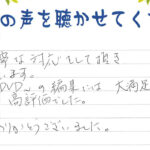 の声を聴かせてく
寧な対応をして頂き
います。
DVDの編集には大満足
高評価でした。
ありがとうございました。